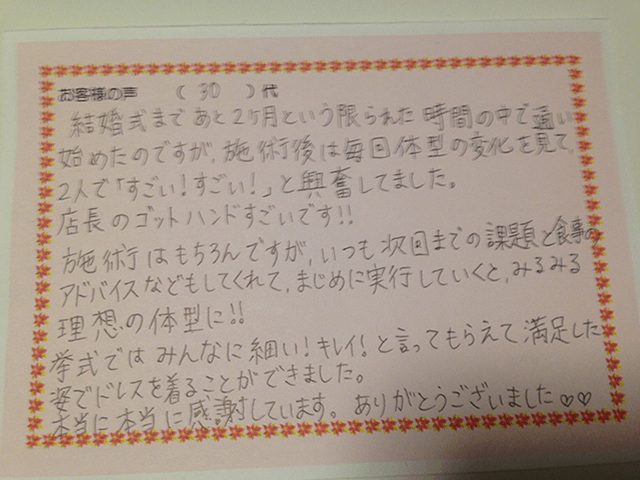 お客様の声 ( 30 )代
結婚式まであと2ヶ月という限られた時間の中で通い
始めたのですが、施術後は毎回体型の変化を見て、
2人で「すごい!すごい!」と興奮してました。
店長のゴットハンドすごいです!!
施術はもちろんですが、いつも次回までの課題と食事の
アドバイスなどもしてくれて、まじめに実行していくと、みるみる
理想の体型に!!
挙式ではみんなに細い!キレイ!と言ってもらえて満足した
姿でドレスを着ることができました。
本当に本当に感謝しています。ありがとうございました♡♡